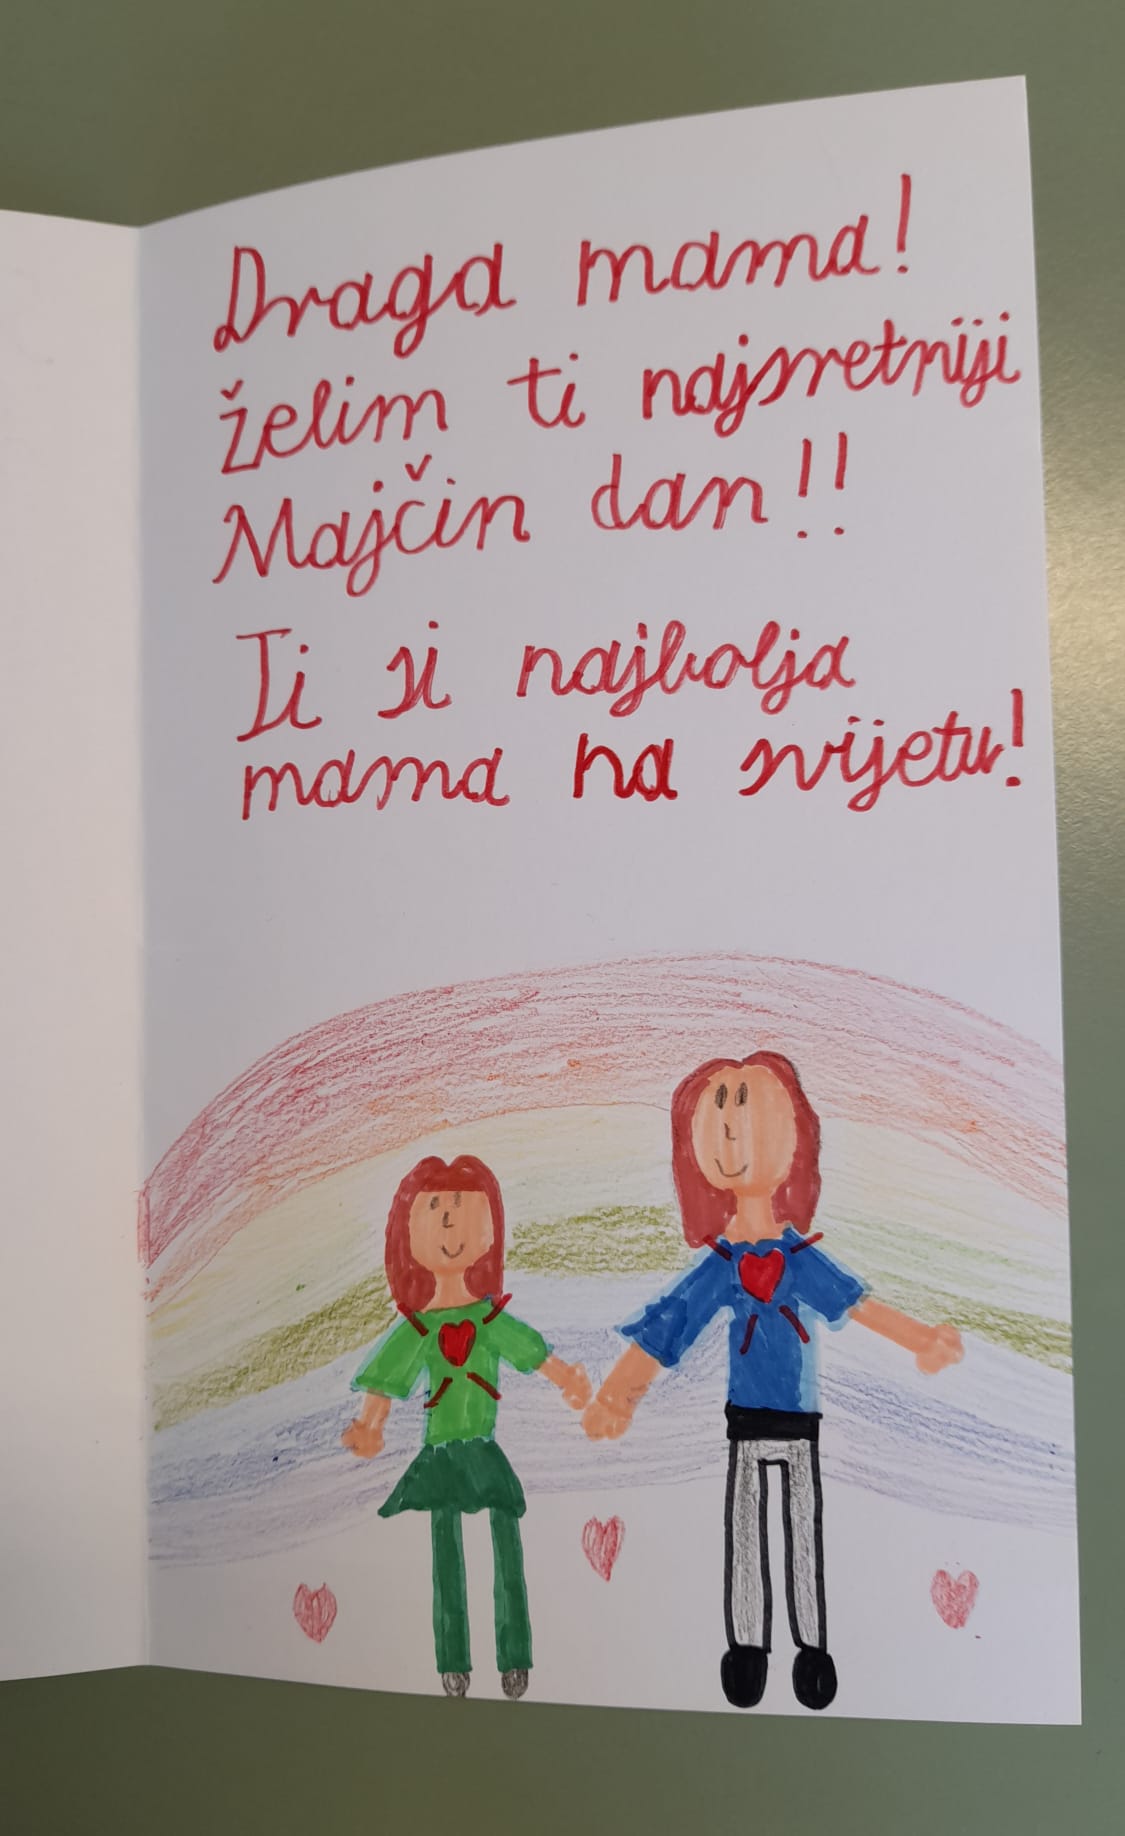 Draga mama!
želim ti najsretniji
Majčin dan!!
Ti si najbolja
mama na svijetu!